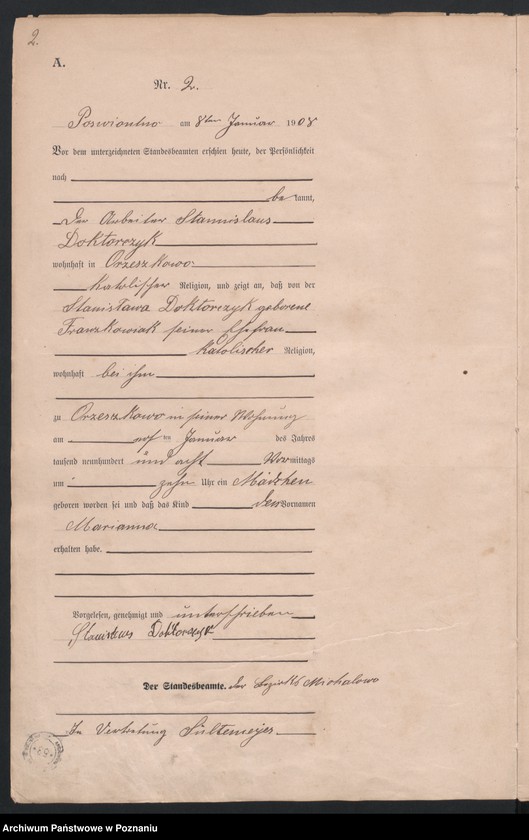 2.
A.
Nr. 2.
Poswiontno am 8ten Januar 1908
Vor dem unterzeichneten Standesbeamten erschien heute, der Persönlichkeit
nach
be kannt,
Der Arbeiter Stanislaus
Doktorczyk
wohnhaft in Orzeszkowo
katolischer Religion, und zeigt an, daß von der
Stanisława Doktorczyk geborene
Franzkowiak seiner Ehefrau
katolischer Religion,
wohnhaft bei ihm
zu Orzeszkowo in seiner Wohnung
am ten Januar des Jahres
tausend neunhundert und acht Vormittags
um zehn Uhr ein Mädchen
geboren worden sei und daß das Kind den Vornamen
Marianna
erhalten habe.
Vorgelesen, genehmigt und unterschrieben
Stanisłaus Doktorczyk
Der Standesbeamte. des Bezirks Michalowo
In Vertretung Sültemeyer
Archiwum Państwowe w Poznaniu